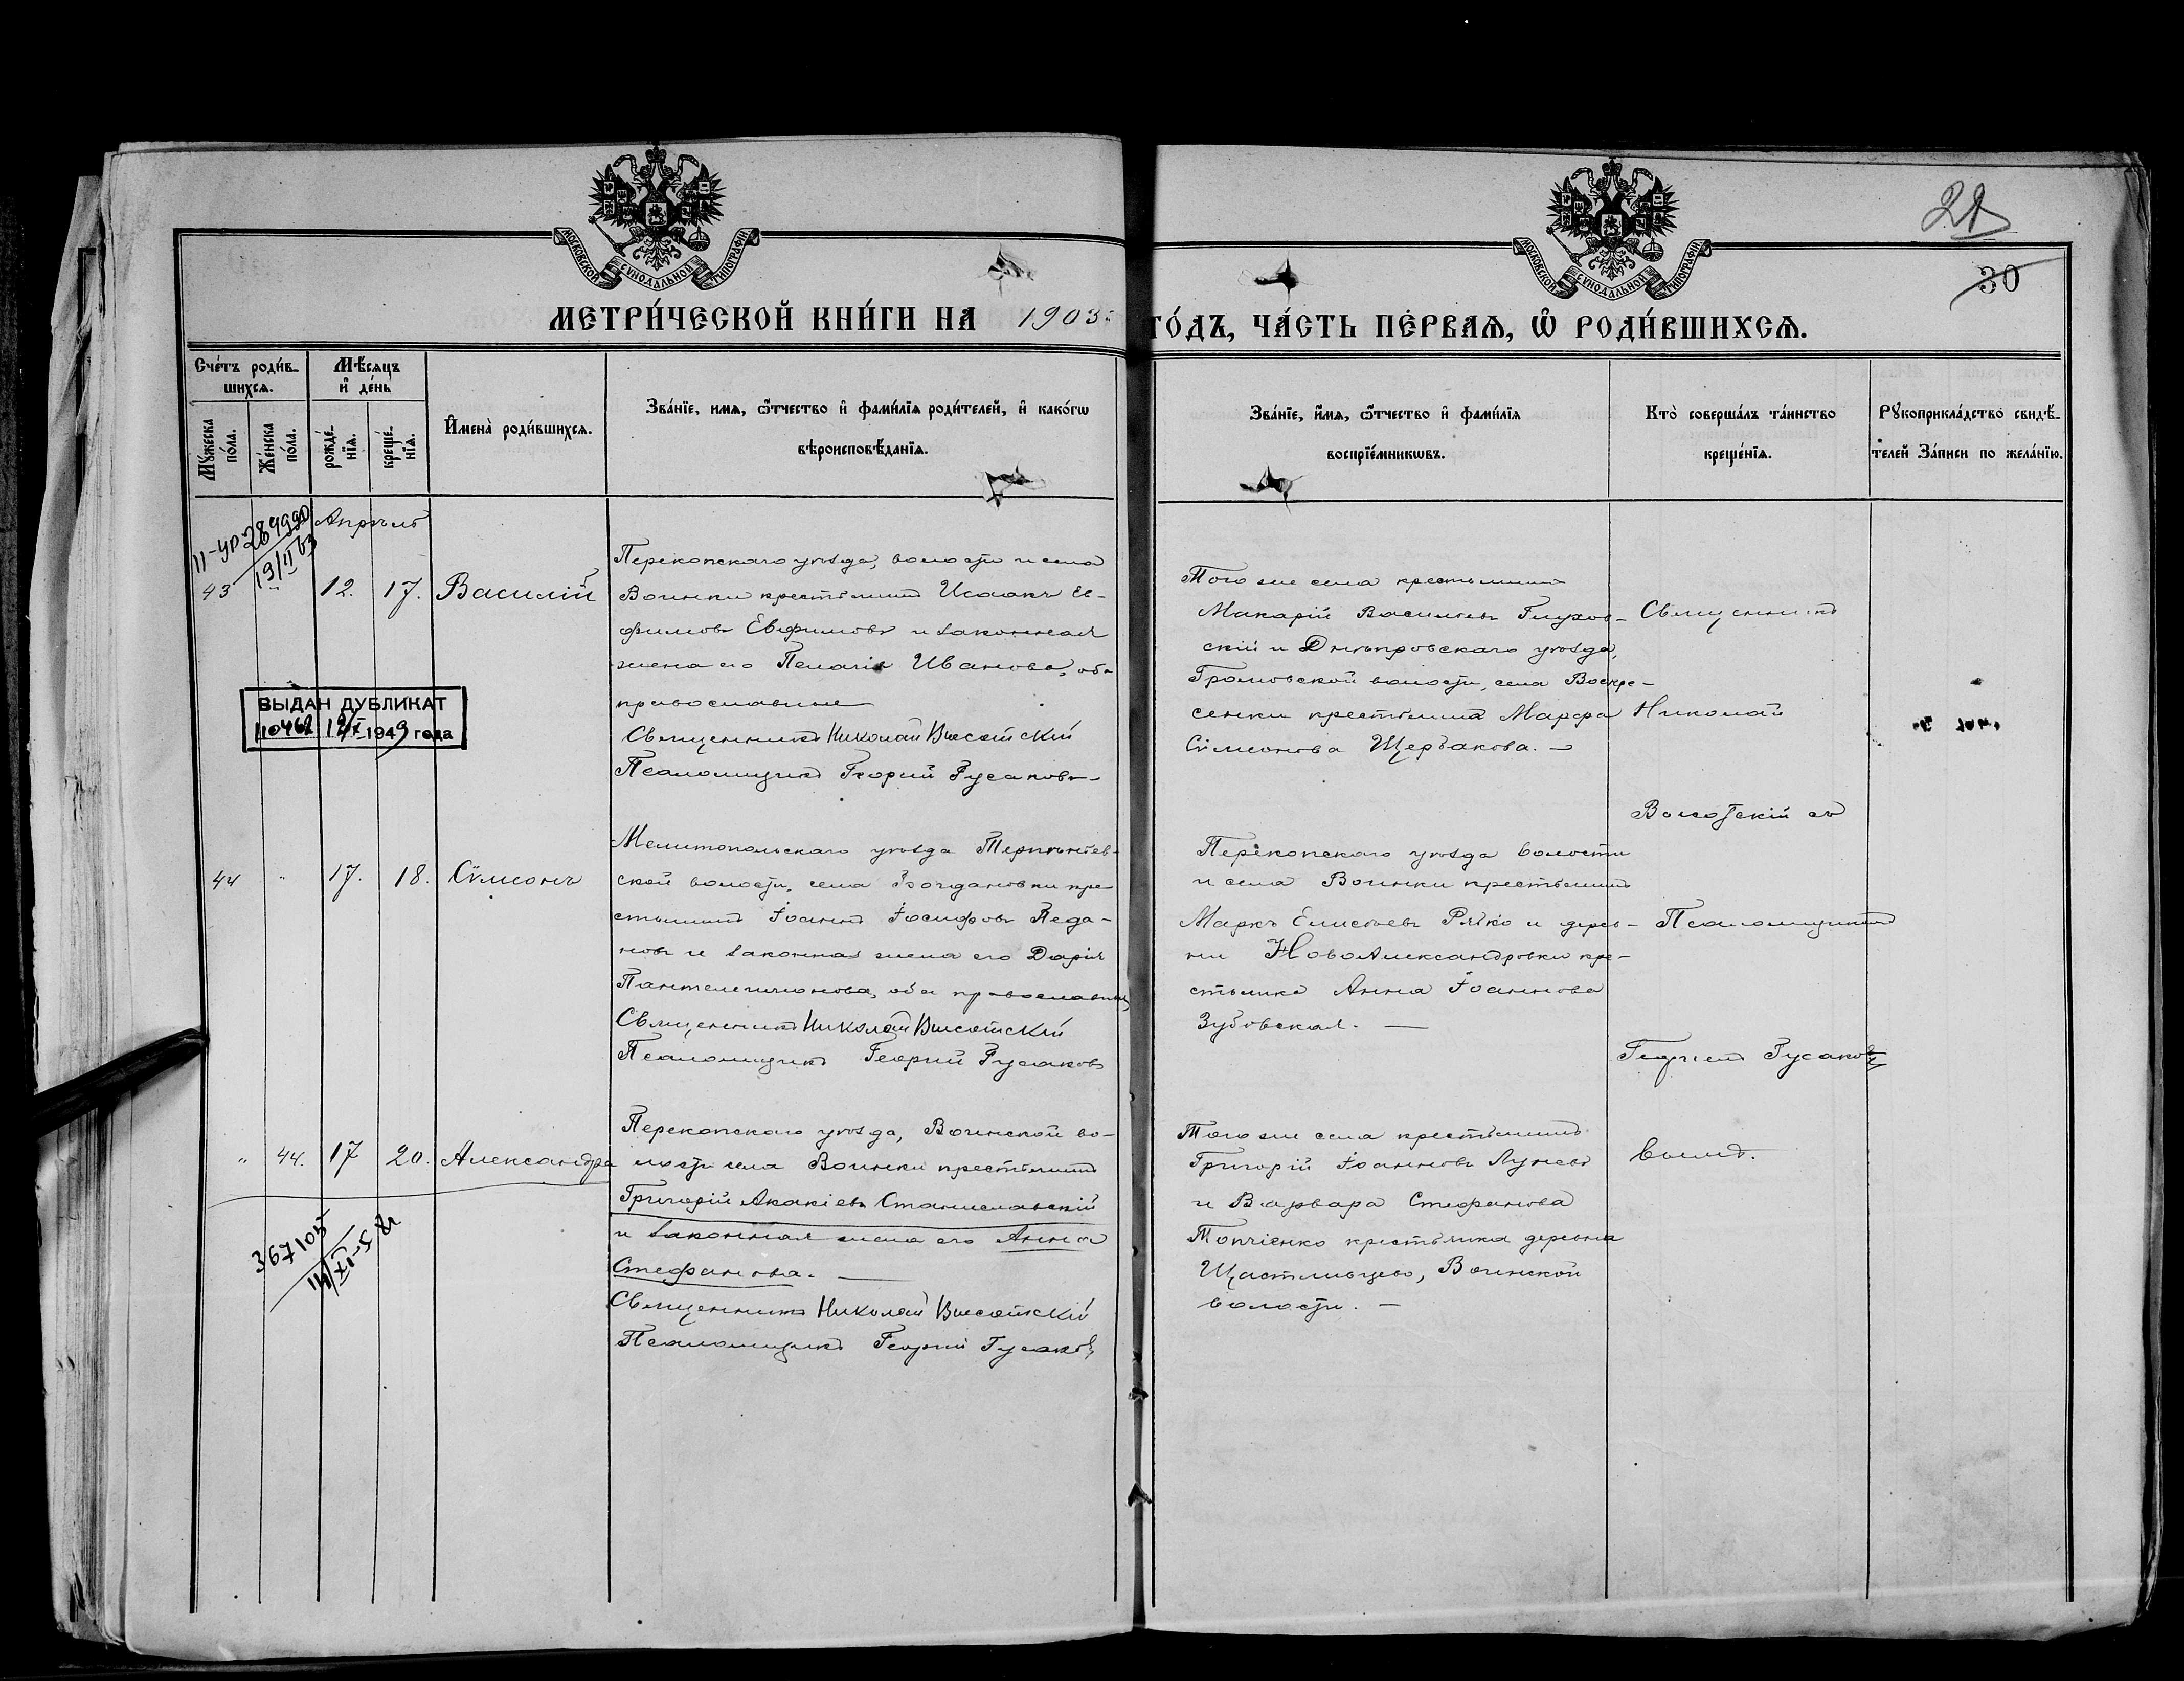 МОСКОВСКОЙ СѴНОДАЛЬНОЙ ТИПОГРАФІИ
МОСКОВСКОЙ СѴНОДАЛЬНОЙ ТИПОГРАФІИ
30
МЕТРИ́ЧЕСКОЙ КНИ́ГИ НА 1903 ГО́ДЪ, ЧА́СТЬ ПЕ́РВАѦ, Ѡ РОДИ́ВШИХСѦ.
Сче́тъ роди́в-
шихсѧ.
Мѣ́сѧцъ
и де́нь
Мꙋ́жеска
по́ла.
Же́нска
по́ла.
рожде́-
нїѧ.
креще́-
нїѧ.
Имена̀ роди́вшихсѧ.
Зва́нїе, имѧ, ѻ҆́тчество и фами́лїѧ роди́телей, и како́гѡ
вѣроисповѣ́данїѧ.
Зва́нїе, и́мѧ, ѻ҆́тчество и фами́лїѧ
воспрїе́мникѡвъ.
Кто̀ соверша́лъ та́инство
креще́нїѧ.
Рꙋкоприкла́дство свидѣ́-
телей за́писи по жела́нїю.
284990
Апрѣль
43 12. 17. Василій
Перекопскаго уѣзда, волости и села
Воинки крестьянинъ Исаакъ Ев-
фимовъ Евфимовъ и законная
жена его Пелагія Иванова, оба
православные
Священникъ Николай Высотскій
Псаломщикъ Георгій Гусаковъ
Того же села крестьянинъ
Макарій Васильевъ Глухов-
скій и Днѣпровскаго уѣзда,
Громовской волости, села Воскре-
сенки крестьянка Марфа
Сѵмеонова Щербакова.
Священникъ
Николай
ВЫДАН ДУБЛИКАТ
110462 1949 года
44 " 17. 18. Сѵмеонъ
Мелитопольскаго уѣзда Терпѣніев-
ской волости, села Богдановки кре-
стьянинъ Іоаннъ Іосифовъ
и законная жена его Дарія
Пантелеимонова, оба православные,
Священникъ Николай Высотскій
Псаломщикъ Георгій Гусаковъ
Перекопскаго уѣзда волости
и села Воинки крестьянинъ
Маркъ Елисѣевъ и дерев-
ни НовоАлександровки кре-
стьянка Анна Іоаннова
Зубовская.
Высотскій съ
Псаломщикомъ
Георгіемъ Гусаковымъ
" 44. 17 20. Александра
Перекопскаго уѣзда, Воинской во-
лости села Воинки крестьянинъ
Григорій Акакіевъ Станиславскій
и законная жена его Анна
Стефанова.
Священникъ Николай Высотскій
Псаломщикъ Георгій Гусаковъ
Того же села крестьянинъ
Григорій Іоанновъ Лунёвъ
и Варвара Стефанова
Топчіенко крестьянка деревни
Щастливцево, Воинской
волости.
367105